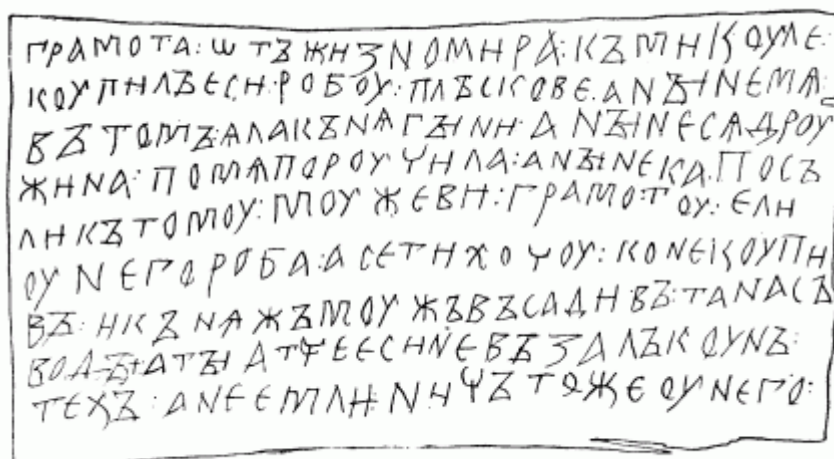 грамота:ѡтъжизномира:къмикоуле:
коупилъеси:робоу:плъскове:анꙑнемѧ:
вътомъ:алакънѧгꙑни:анꙑнесѧдроу
жина:помѧпороуцила:анꙑнека:посъ
ликътомоу:моужеви:грамотоу:ели
оунегороба:асетихоцоу:конекоупи
въ:икънѧжъмоужъвъсадивъ:танасъ
водꙑ:атꙑатцеесиневъзалъкоунъ:
техъ:анеемли:ницътожеоунего: